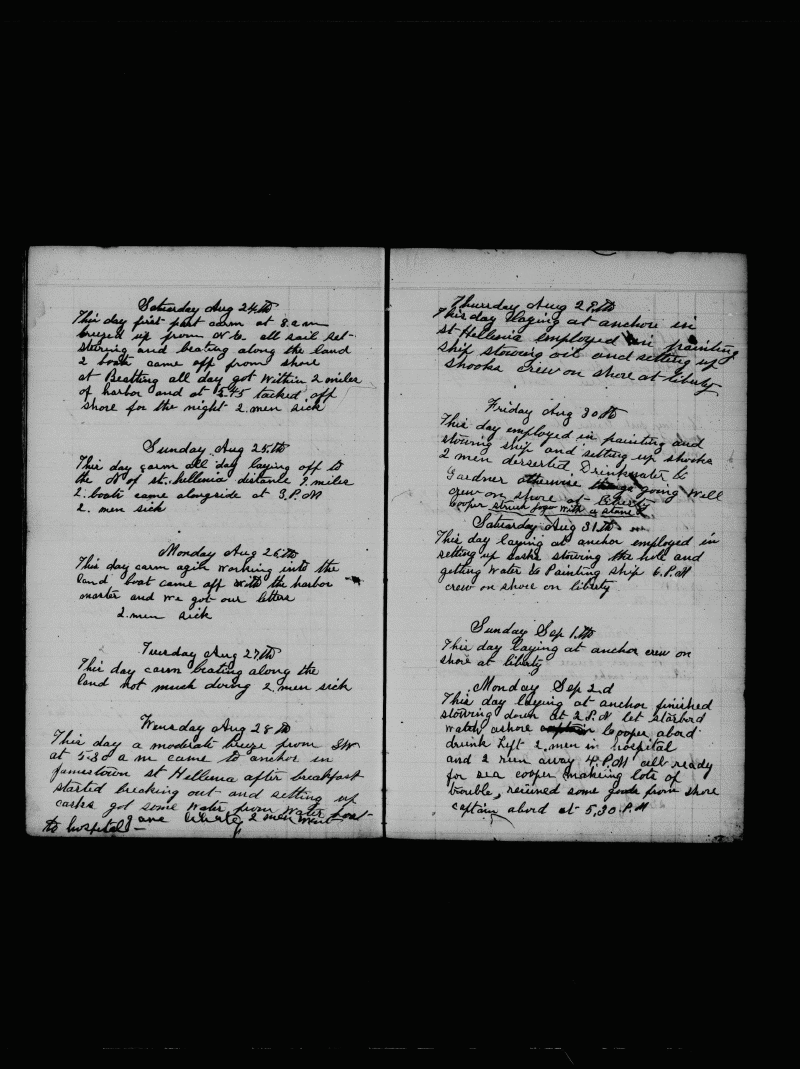 Saturday Aug 24th
This day first part carm at 8 a m
breezed up from N E all sail set-
steering and beating along the land
2 boats came off from shore
at Beatting all day got within 2 miles
of harbor and at 5.45 tacked off
shore for the night 2 men sick
Sunday Aug 25th
This day carm all day laying off to
the N of st. hellenia distance 2 miles
2. boats came alongside at 3. P. M
2. men sick
Monday Aug 26th
This day carm agin working into the
land boat came off with the harbor
marster and we got our letters
2. men sick
Tuesday Aug 27th
This day carm beating along the
land not much doing 2. men sick
Wensday Aug 28th
This day a moderate breze from SW
at 5.30 a m came to anchor in
Jamestown st Hellenia after breakfast
started breaking out and setting up
casks got some water from water boat-
gave liberty 2 men went
to hospital -
Thursday Aug 29th
This day laying at anchore in
st Hellenia employed in painting
ship stowing oil and setting up
shooks crew on shore at liberty
Friday Aug 30th
This day employed in painting and
stowing ship and setting up shooks
2 men desserted Drinkwater &
Gardner otherwise things going well
crew on shore at liberty
Cooper struck Jogo with a stone
Saturday Aug 31th
This day laying at anchor employed in
setting up casks stowing the hole and
getting water & Painting ship 6. P. M
crew on shore on liberty
Sunday Sep 1.th
This day laying at anchor crew on
shore at liberty
Monday Sep 2.d
This day laying at anchor finished
stowing down at 2 P. M let starbord
watch ashore Cooper abord
drunk Left 2. men in hospital
and 2 run away 4. P. M all ready
for sea cooper making lots of
trouble, recieved some goods from shore
captain abord at 5,30 P. M